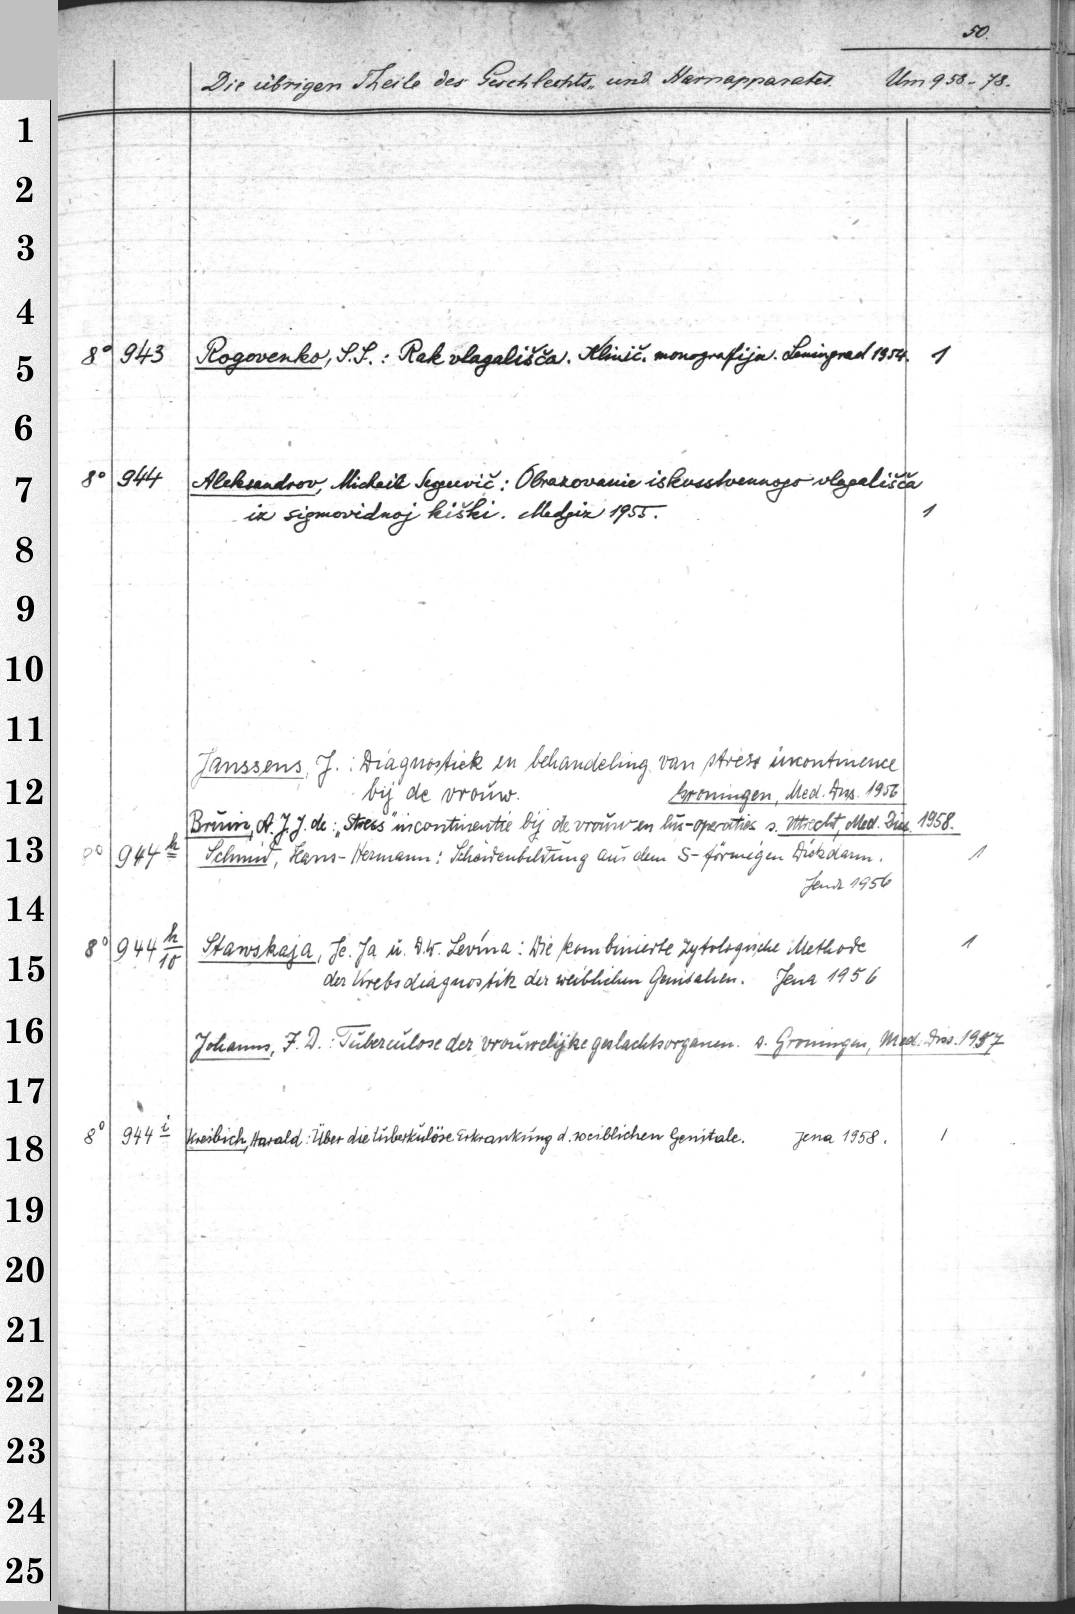 50.
Die übrigen Theile des Geschlechts- und Harnapparates. Um 958-78.
1
2
3
4
5
8° 943 Rogovenko, S.S.: Rak vlagališča. Klinič. monografija. Leningrad 1954. 1
6
7
8° 944 Aleksandrov, Michail Sergeevič: Obrazovanie iskusstvennogo vlagališča
iz sigmovidnoj kiški. Medgiz 1955. 1
8
9
10
11
Janssens, J.: Diagnostiek en behandeling van stress incontinence
12
bij de vrouw. Groningen, Med. Diss. 1956
Bruin, A.J.J. de: „Stress" incontinentie bij de vrouw en lus-operaties s. Utrecht, Med. Diss. 1958.
13
8° 944 h Schmid, Hans-Hermann: Scheidenbildung aus dem S-förmigen Dickdarm. 1
Jena 1956
14
8° 944 h/10 Stawskaja, Je. Ja u. D.W. Levina: Die kombinierte zytologische Methode 1
15
der Krebsdiagnostik der weiblichen Genitalien. Jena 1956
16
Johanns, F.D.: Tuberculose der vrouwelijke geslachtsorganen. s. Groningen, Med. Diss. 1957
17
18
8° 944 i Kreibich, Harald: Über die tuberkulöse Erkrankung d. weiblichen Genitale. Jena 1958. 1
19
20
21
22
23
24
25